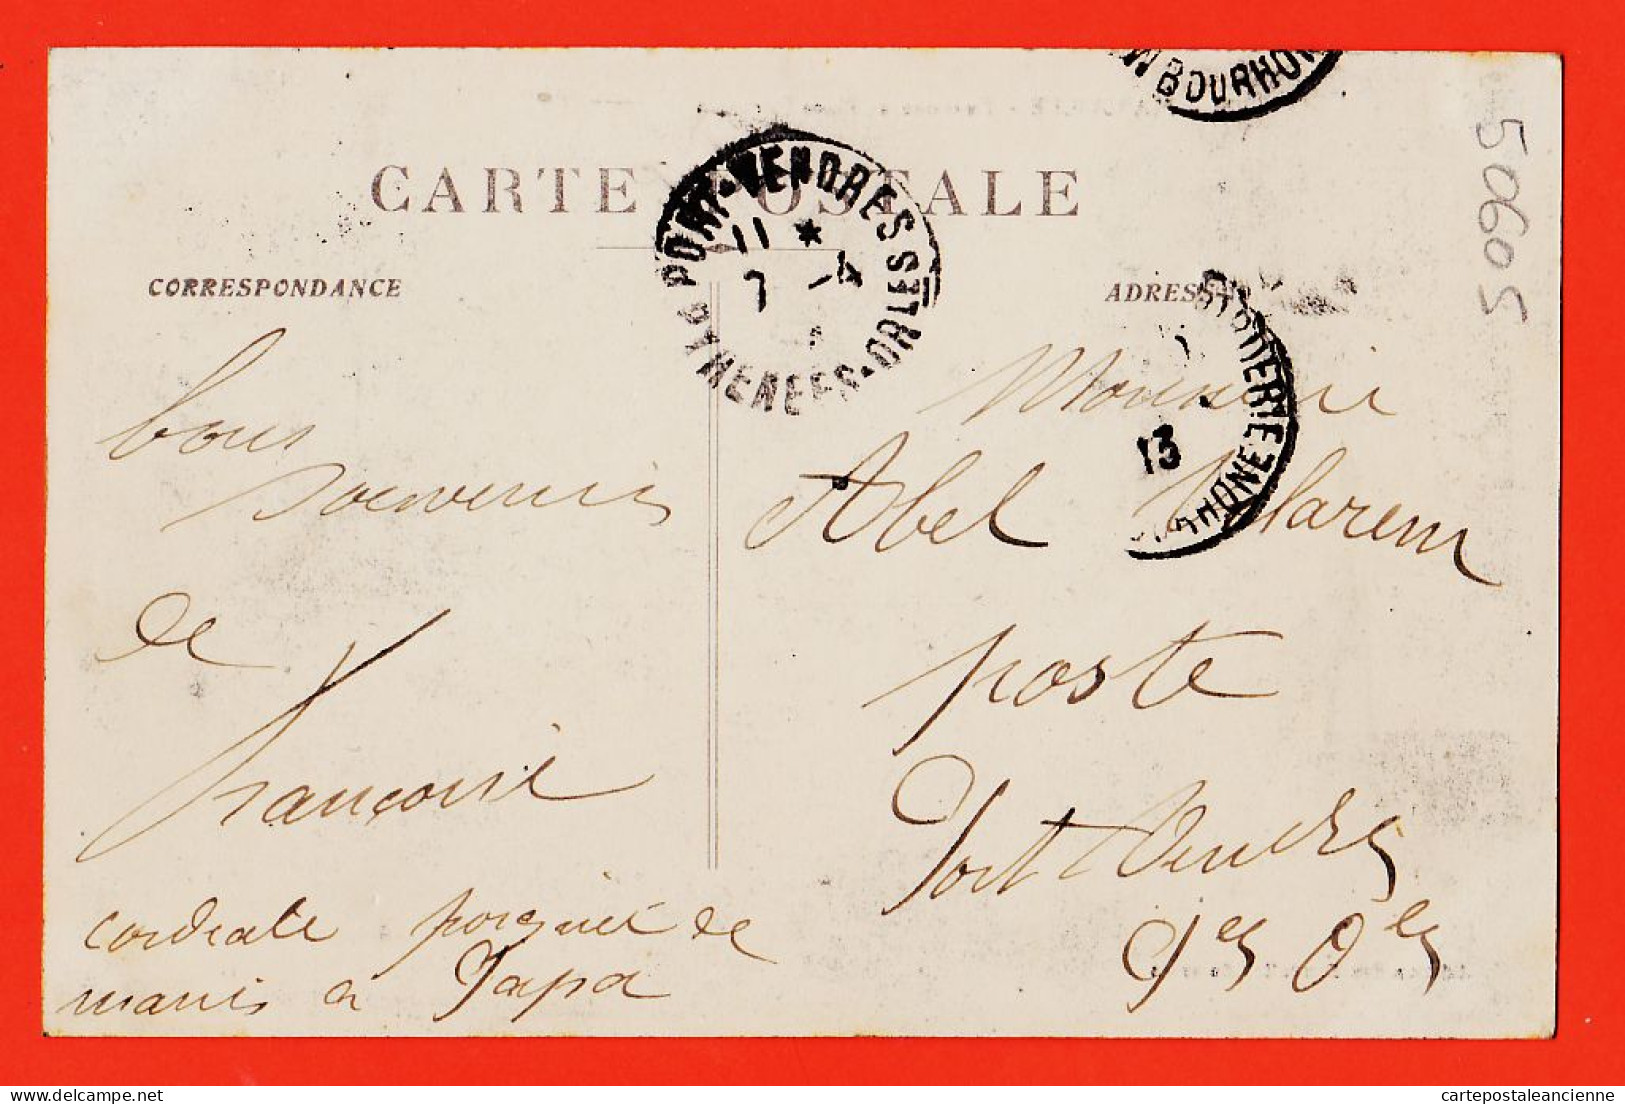 CARTE POSTALE
CORRESPONDANCE
ADRESSE
PORT-VENDRES
PYRENEES-ORLES
11 *
7 -
13
50605
bons
souvenirs
de
Françoise
cordiale poignée de
mains à Papa
Monsieur
Abel
poste
Port Vendres
Pes Oles
cartepostaleancienne.com